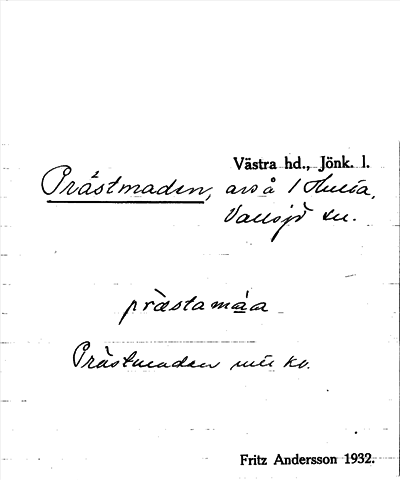 Västra hd., Jönk. l.
Prästmaden, avs å 1 Hulta,
Vallsjö sn.
præstamáa
Prästmaden urú ko.
Fritz Andersson 1932.